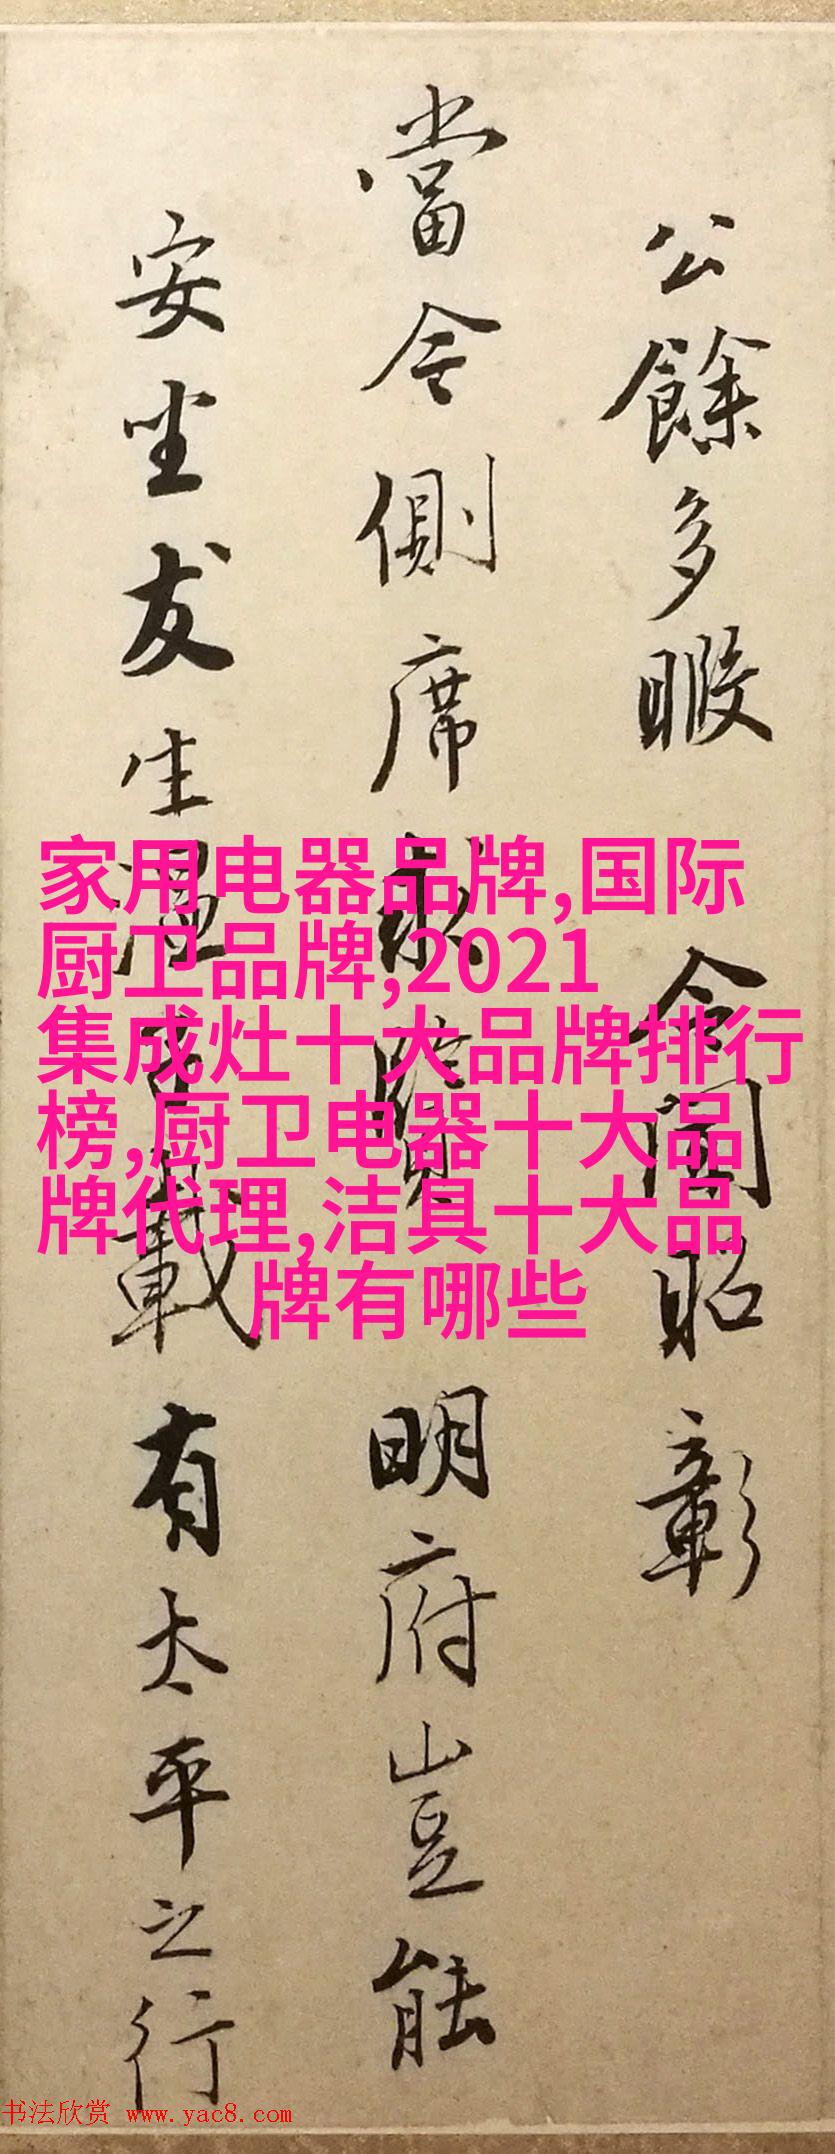 公餘多暇 令聞昭彰
當今側席求賢明府豈能
安坐友生溫載有太平之行
家用电器品牌,国际
厨卫品牌,2021
集成灶十大品牌排行
榜,厨卫电器十大品
牌代理,洁具十大品
牌有哪些
书法欣赏 www.yac8.com